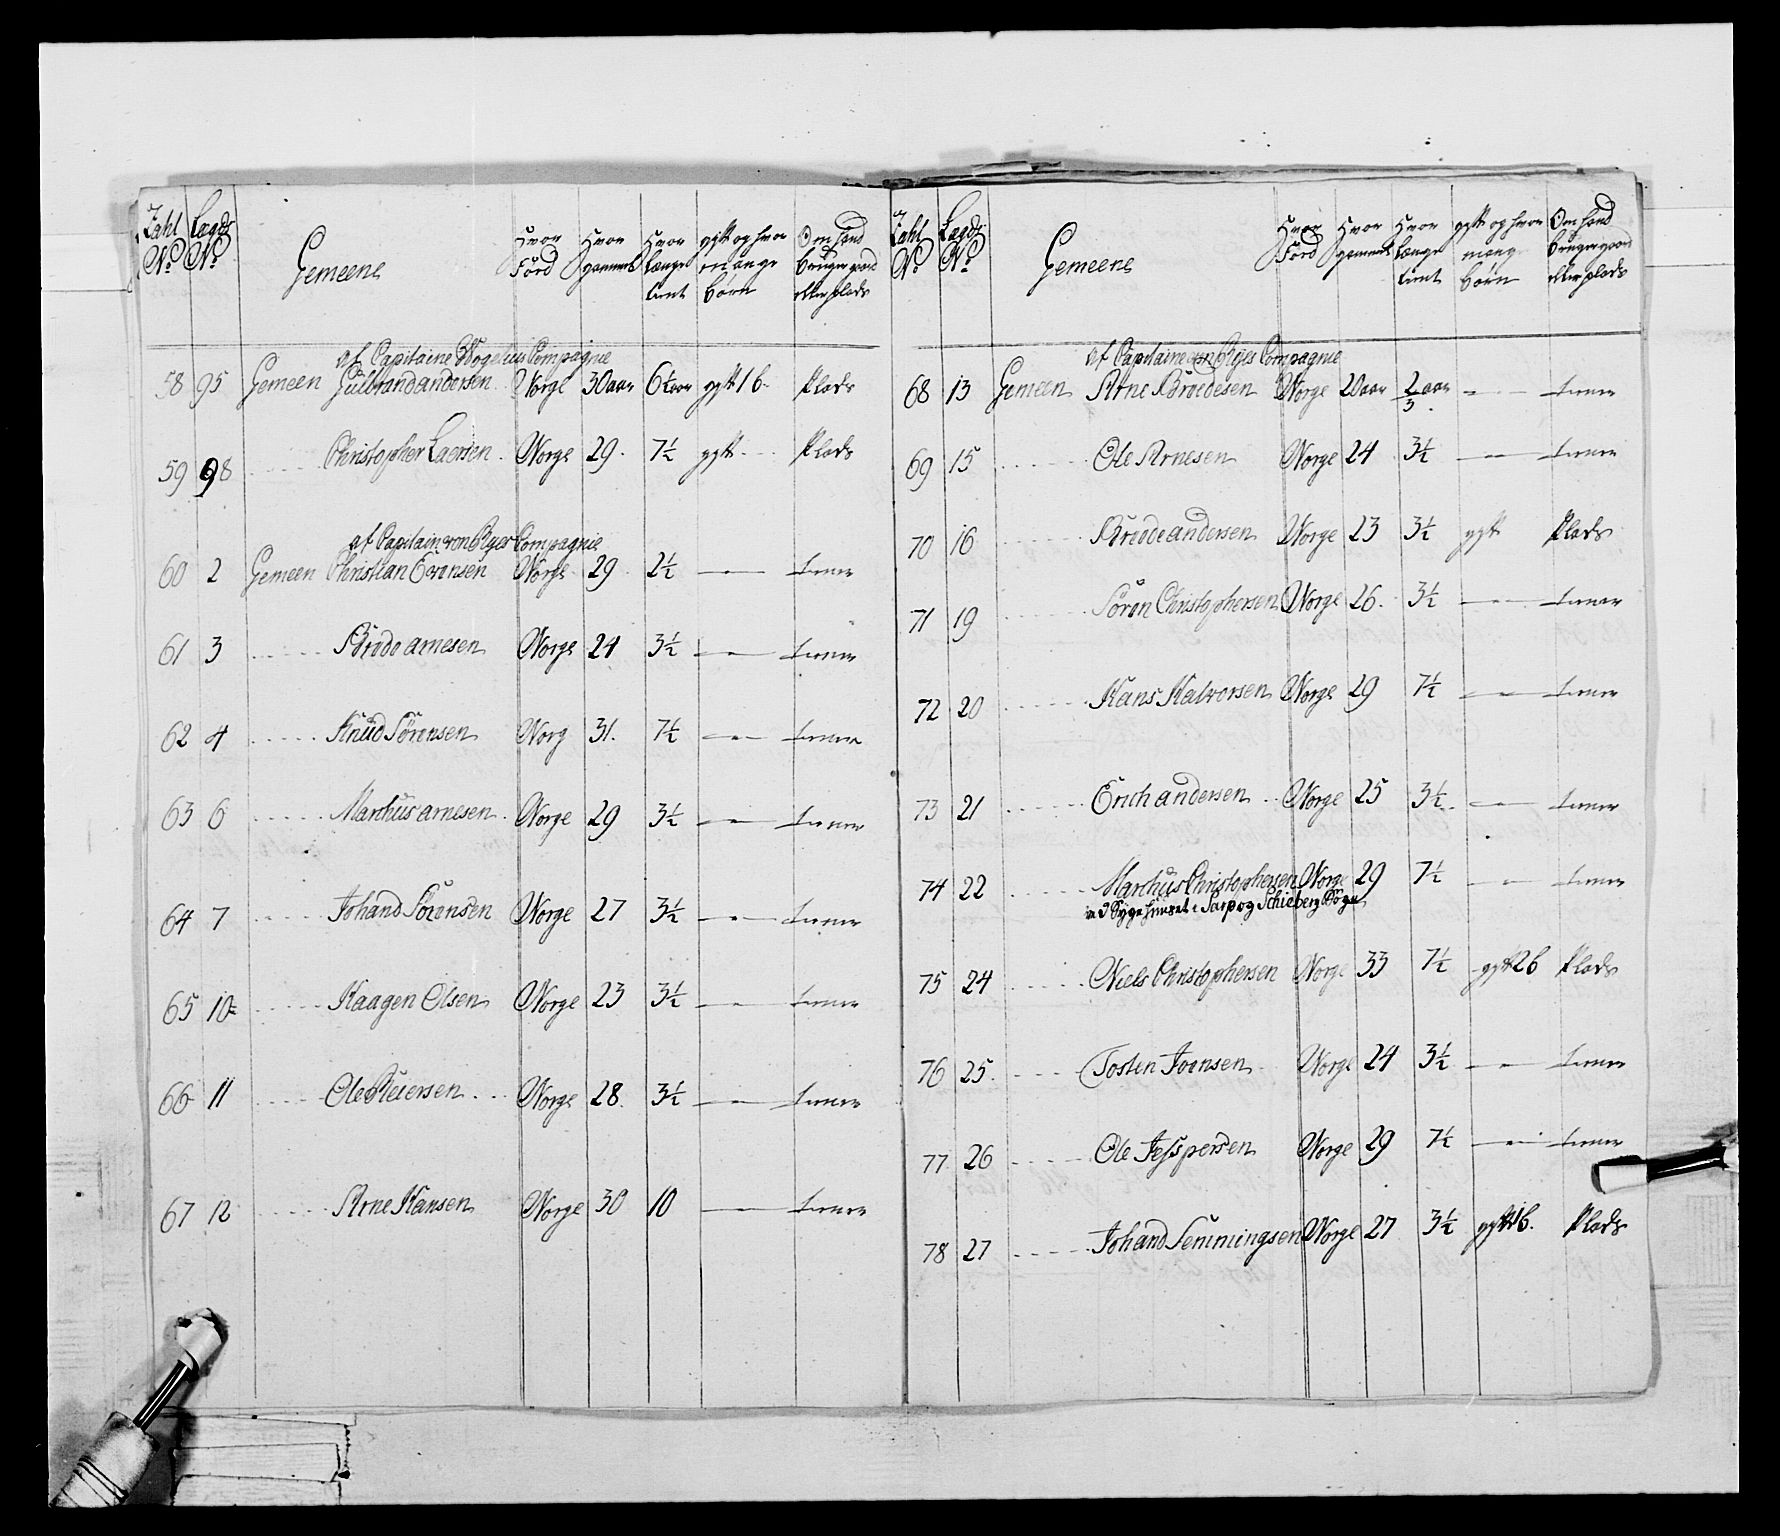 Zahl No Lægds No Gemeene Hvor Föed Hvor gammel Hvor længe tient gift og hvor mange börn Om hand bruger gaard eller plads
af Capitaine Vogelius Compagnie
58 95 Gemeen Gulbrand andersen Norge 30 aar 6½ aar gift 1 b. Plads
59 98 Christopher Laersen Norge 29 7½ gift Plads
af Capitain von Ryes Compagnie
60 2 Gemeen Christian Sörensen Norge 29 2½ — tiener
61 3 Brede arnesen Norge 24 3½ — tiener
62 4 Knud Sörensen Norg 31. 7½ — tiener
63 6 Marthus arnesen Norge 29 3½ — tiener
64 7 Johand Sörensen Norge 27 3½ — tiener
65 10 Haagen Olsen Norge 23 3½ — tiener
66 11 Ole Reiersen Norge 28. 3½ — tiener
67 12 Arne Hansen Norge 30 10 — tiener
Zahl No Lægds No Gemeene Hvor Föed Hvor gammel Hvor længe tient gift og hvor mange börn Om hand bruger gaard eller plads
af Capitaine von Ryes Compagnie
68 13 Gemeen Arne Brædesen Norge 20 aar aar — tiener
69 15 Ole Arnesen Norge 24 3½ — tiener
70 16 Brede andersen Norge 23 3½ gift Plads
71 19 Sören Christophersen Norge 26. 3½ — tiener
72 20 Hans Halvorsen Norge 29 7½ — tiener
73 21 Erich andersen Norge 25 3½ — tiener
74 22 Marthus Christophersen Norge 29 7½ — tiener
ved Sygehuuset i Sarp og Schieberg Sogn
75 24 Niels Christophersen Norge 33 7½ gift 2 b Plads
76 25. Tosten Joensen Norge 24 3½ — tiener
77 26 Ole Jesspersen Norge 29 7½ — tiener
78 27 Johand Semmingsen Norge 27 3½ gift 1 b. Plads